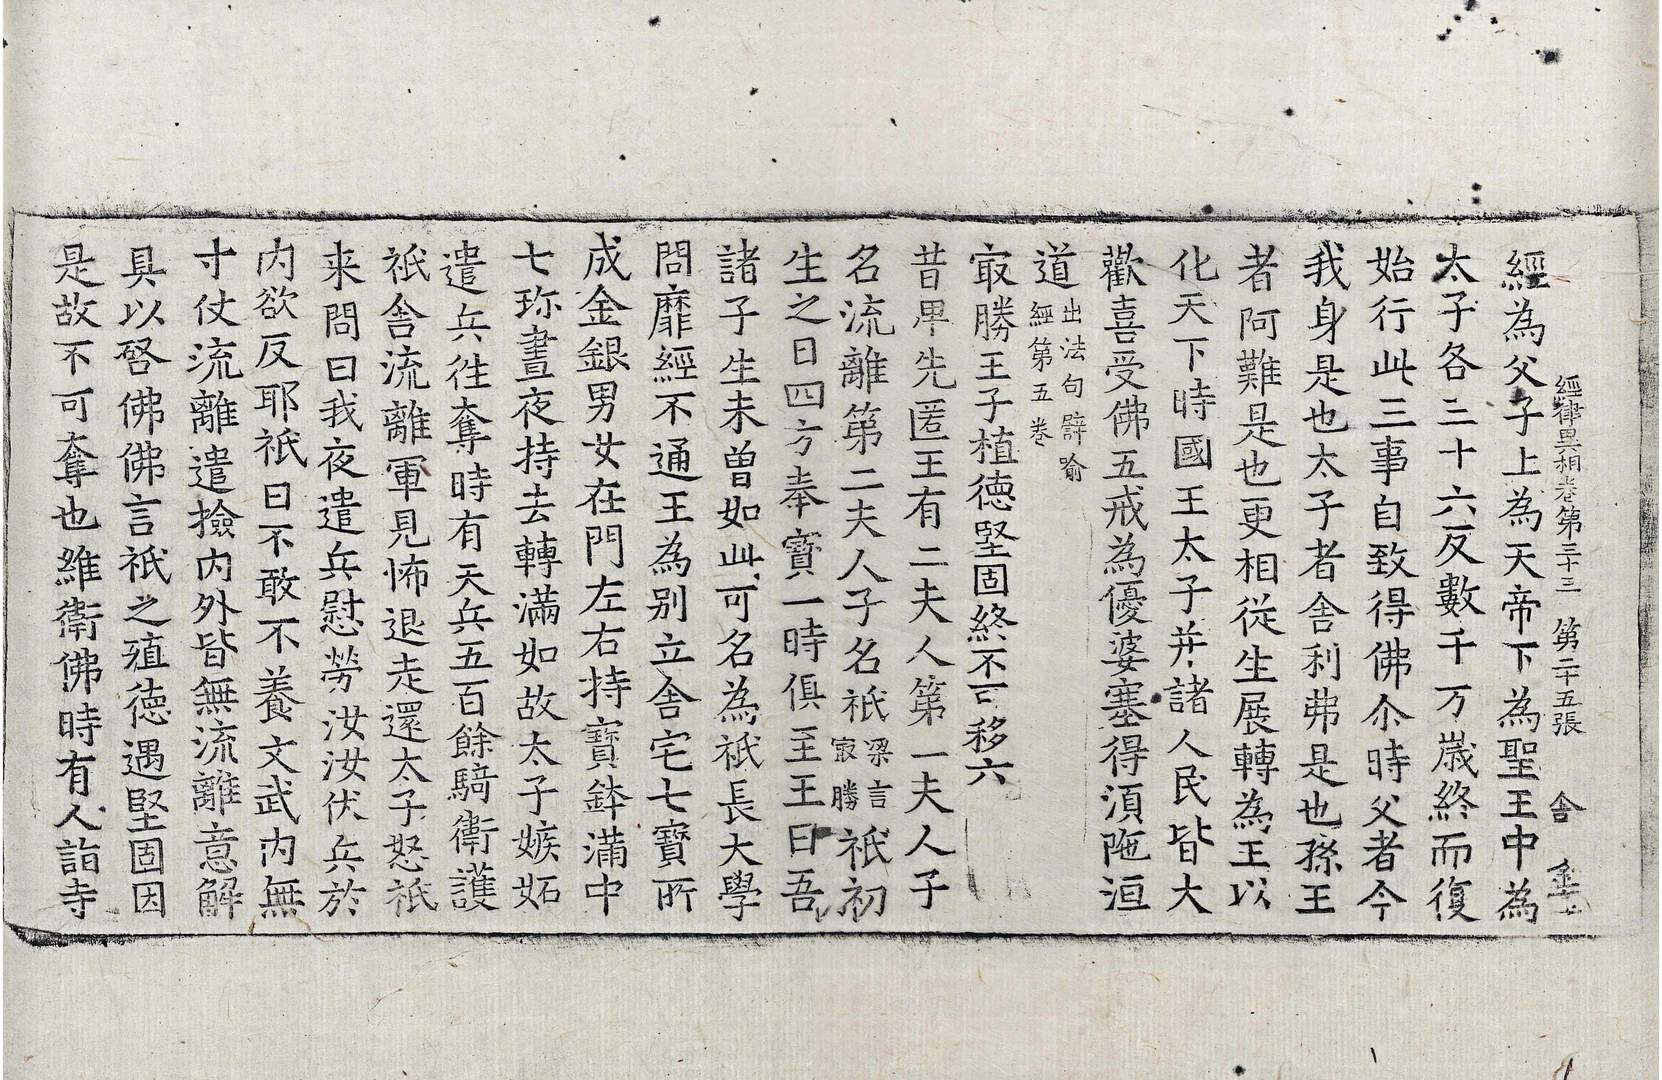 經律異相卷第三十三 第二十五張 舍
經為父子上為天帝下為聖王中為
太子各三十六反數千万歲終而復
始行此三事自致得佛尒時父者今
我身是也太子者舍利弗是也孫王
者阿難是也更相従生展轉為王以
化天下時國王太子并諸人民皆大
歡喜受佛五戒為優婆塞得湏陁洹
道出法句辟喻經第五卷
㝡勝王子植德堅固終不可移六
昔畢先匿王有二夫人第一夫人子
名流離第二夫人子名祇梁言㝡勝祇初
生之日四方奉寶一時俱至王曰吾
諸子生未曾如此可名為祇長大學
問靡經不通王為別立舍宅七寶所
成金銀男女在門左右持寶鉢滿中
七珎晝夜持去轉滿如故太子嫉妬
遣兵往奪時有天兵五百餘騎衛護
祇舍流離軍見怖退走還太子怒祇
来問曰我夜遣兵慰勞汝汝伏兵於
内欲反耶祇曰不敢不養文武内無
寸仗流離遣撿内外皆無流離意解
具以啓佛佛言祇之殖德遇堅固因
是故不可奪也維衛佛時有人詣寺